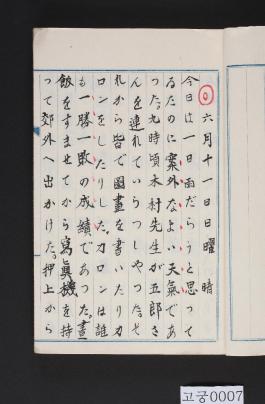 六月十一日日曜 晴
今日は一日雨だらうと思って
ゐたのに案外なよい天気であ
った。九時頃木村先生が五郎さ
んを連れていらっしやった。そ
れから皆で圖畫を書いたりカ
ロンをしたりした。カロンは誰
も一勝一敗の成績であった。晝
飯をすませてから寫眞機を持
って郊外へ出かけた。押上から
고궁0007